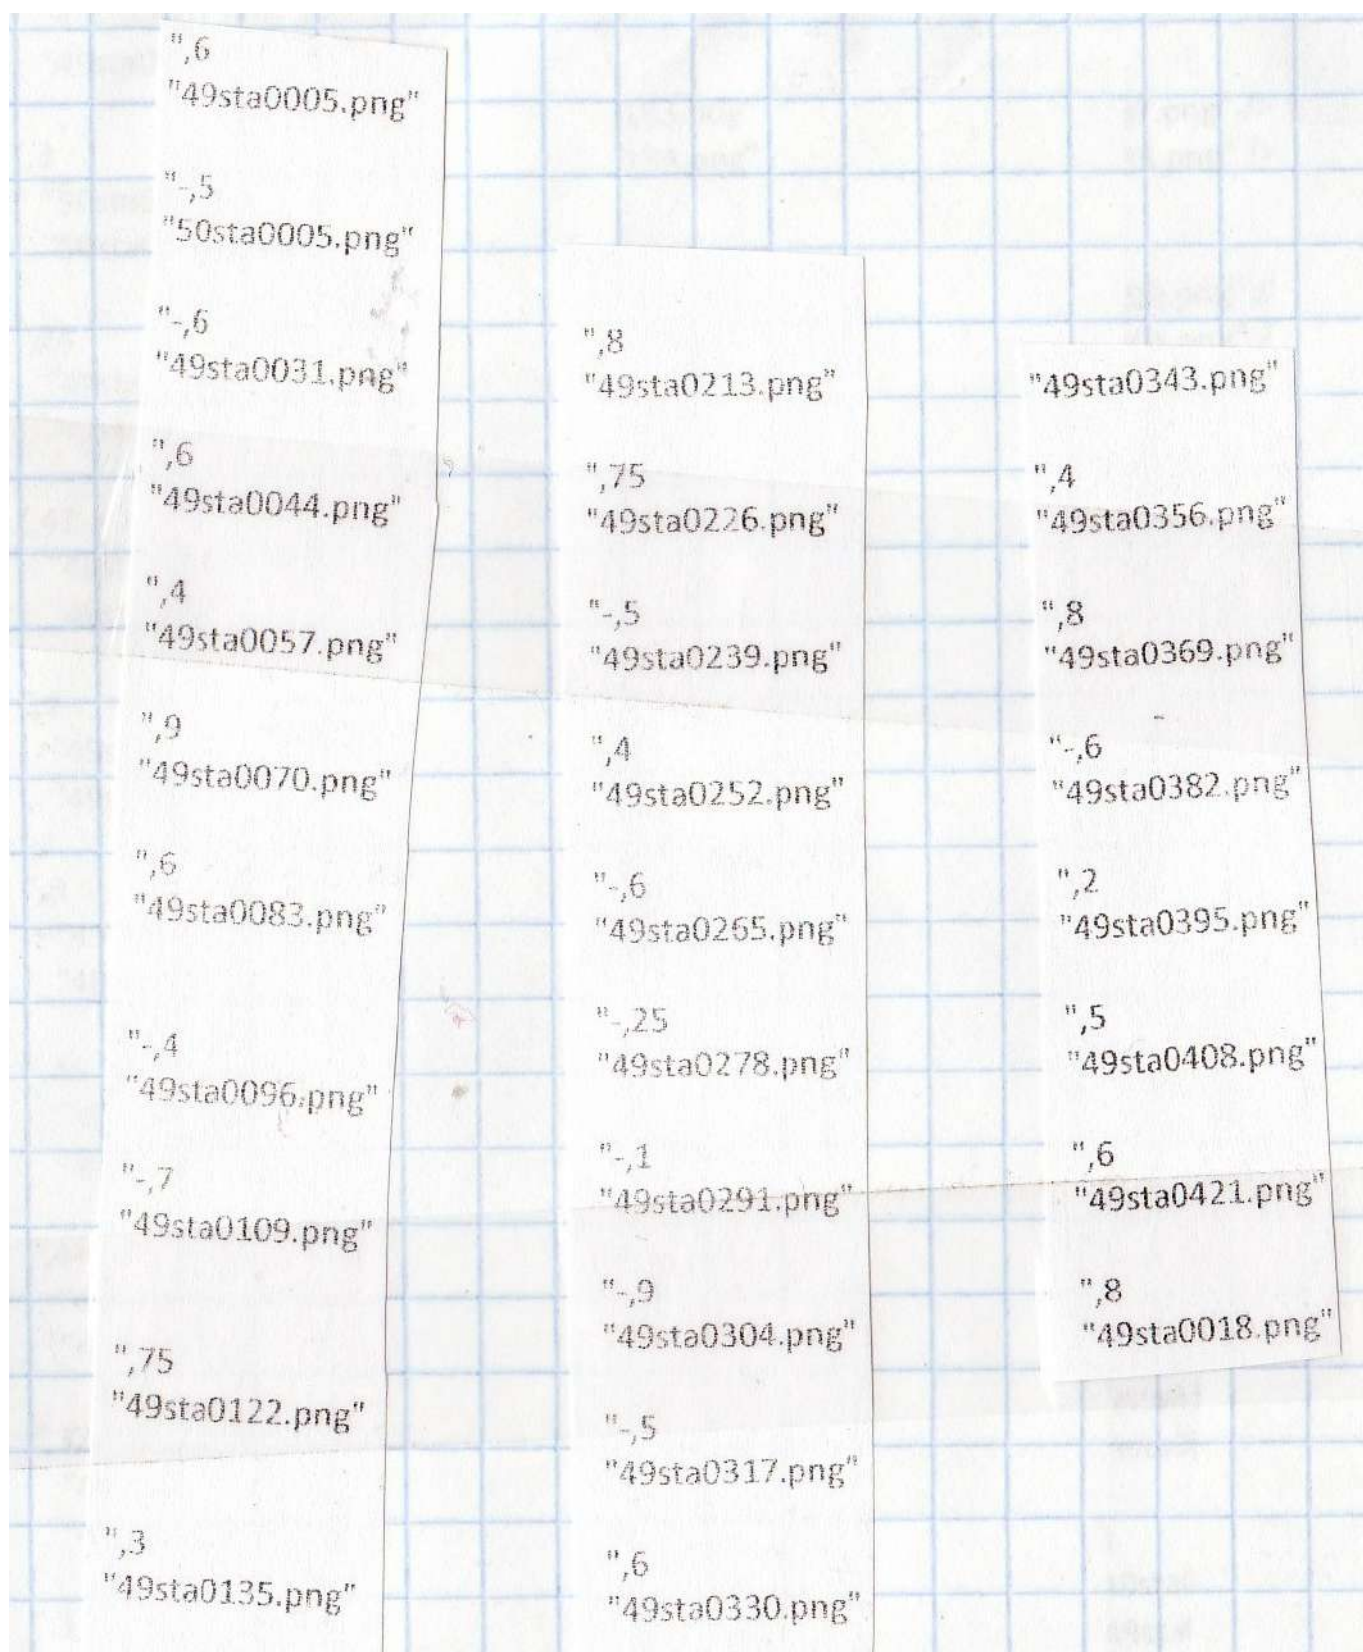 ",6
"49sta0005.png"
"-,5
"50sta0005.png"
"-,6
"49sta0031.png"
",6
"49sta0044.png"
",4
"49sta0057.png"
",9
"49sta0070.png"
",6
"49sta0083.png"
"-,4
"49sta0096.png"
"-,7
"49sta0109.png"
",75
"49sta0122.png"
",3
"49sta0135.png"
",8
"49sta0213.png"
",75
"49sta0226.png"
"-,5
"49sta0239.png"
",4
"49sta0252.png"
"-,6
"49sta0265.png"
"-,25
"49sta0278.png"
"-,1
"49sta0291.png"
"-,9
"49sta0304.png"
"-,5
"49sta0317.png"
",6
"49sta0330.png"
"49sta0343.png"
",4
"49sta0356.png"
",8
"49sta0369.png"
"-,6
"49sta0382.png"
",2
"49sta0395.png"
",5
"49sta0408.png"
",6
"49sta0421.png"
",8
"49sta0018.png"